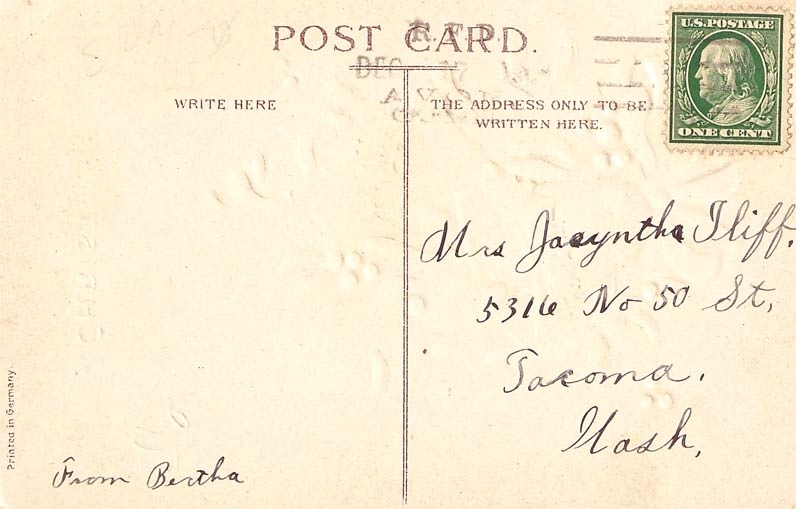 POST CARD.
R.F.D.
DEC
WRITE HERE
THE ADDRESS ONLY TO BE
WRITTEN HERE.
U.S. POSTAGE
ONE CENT
Mrs Jacyntha Iliff.
5316 No 50 St,
Tacoma.
Wash,
From Bertha
Printed in Germany.
CHRIST